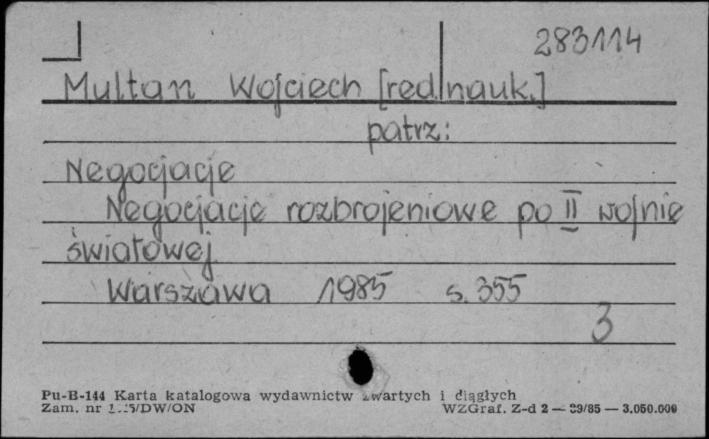 283114
Multan Wojciech [red. nauk.]
patrz:
Negocjacje
Negocjacje rozbrojeniowe po II wojnie
światowej
Warszawa 1985 s. 355
3
Pu-B-144 Karta katalogowa wydawnictw zwartych i ciągłych
Zam. nr /DW/ON WZGraf. Z-d 2 — 39/85 — 3.050.000